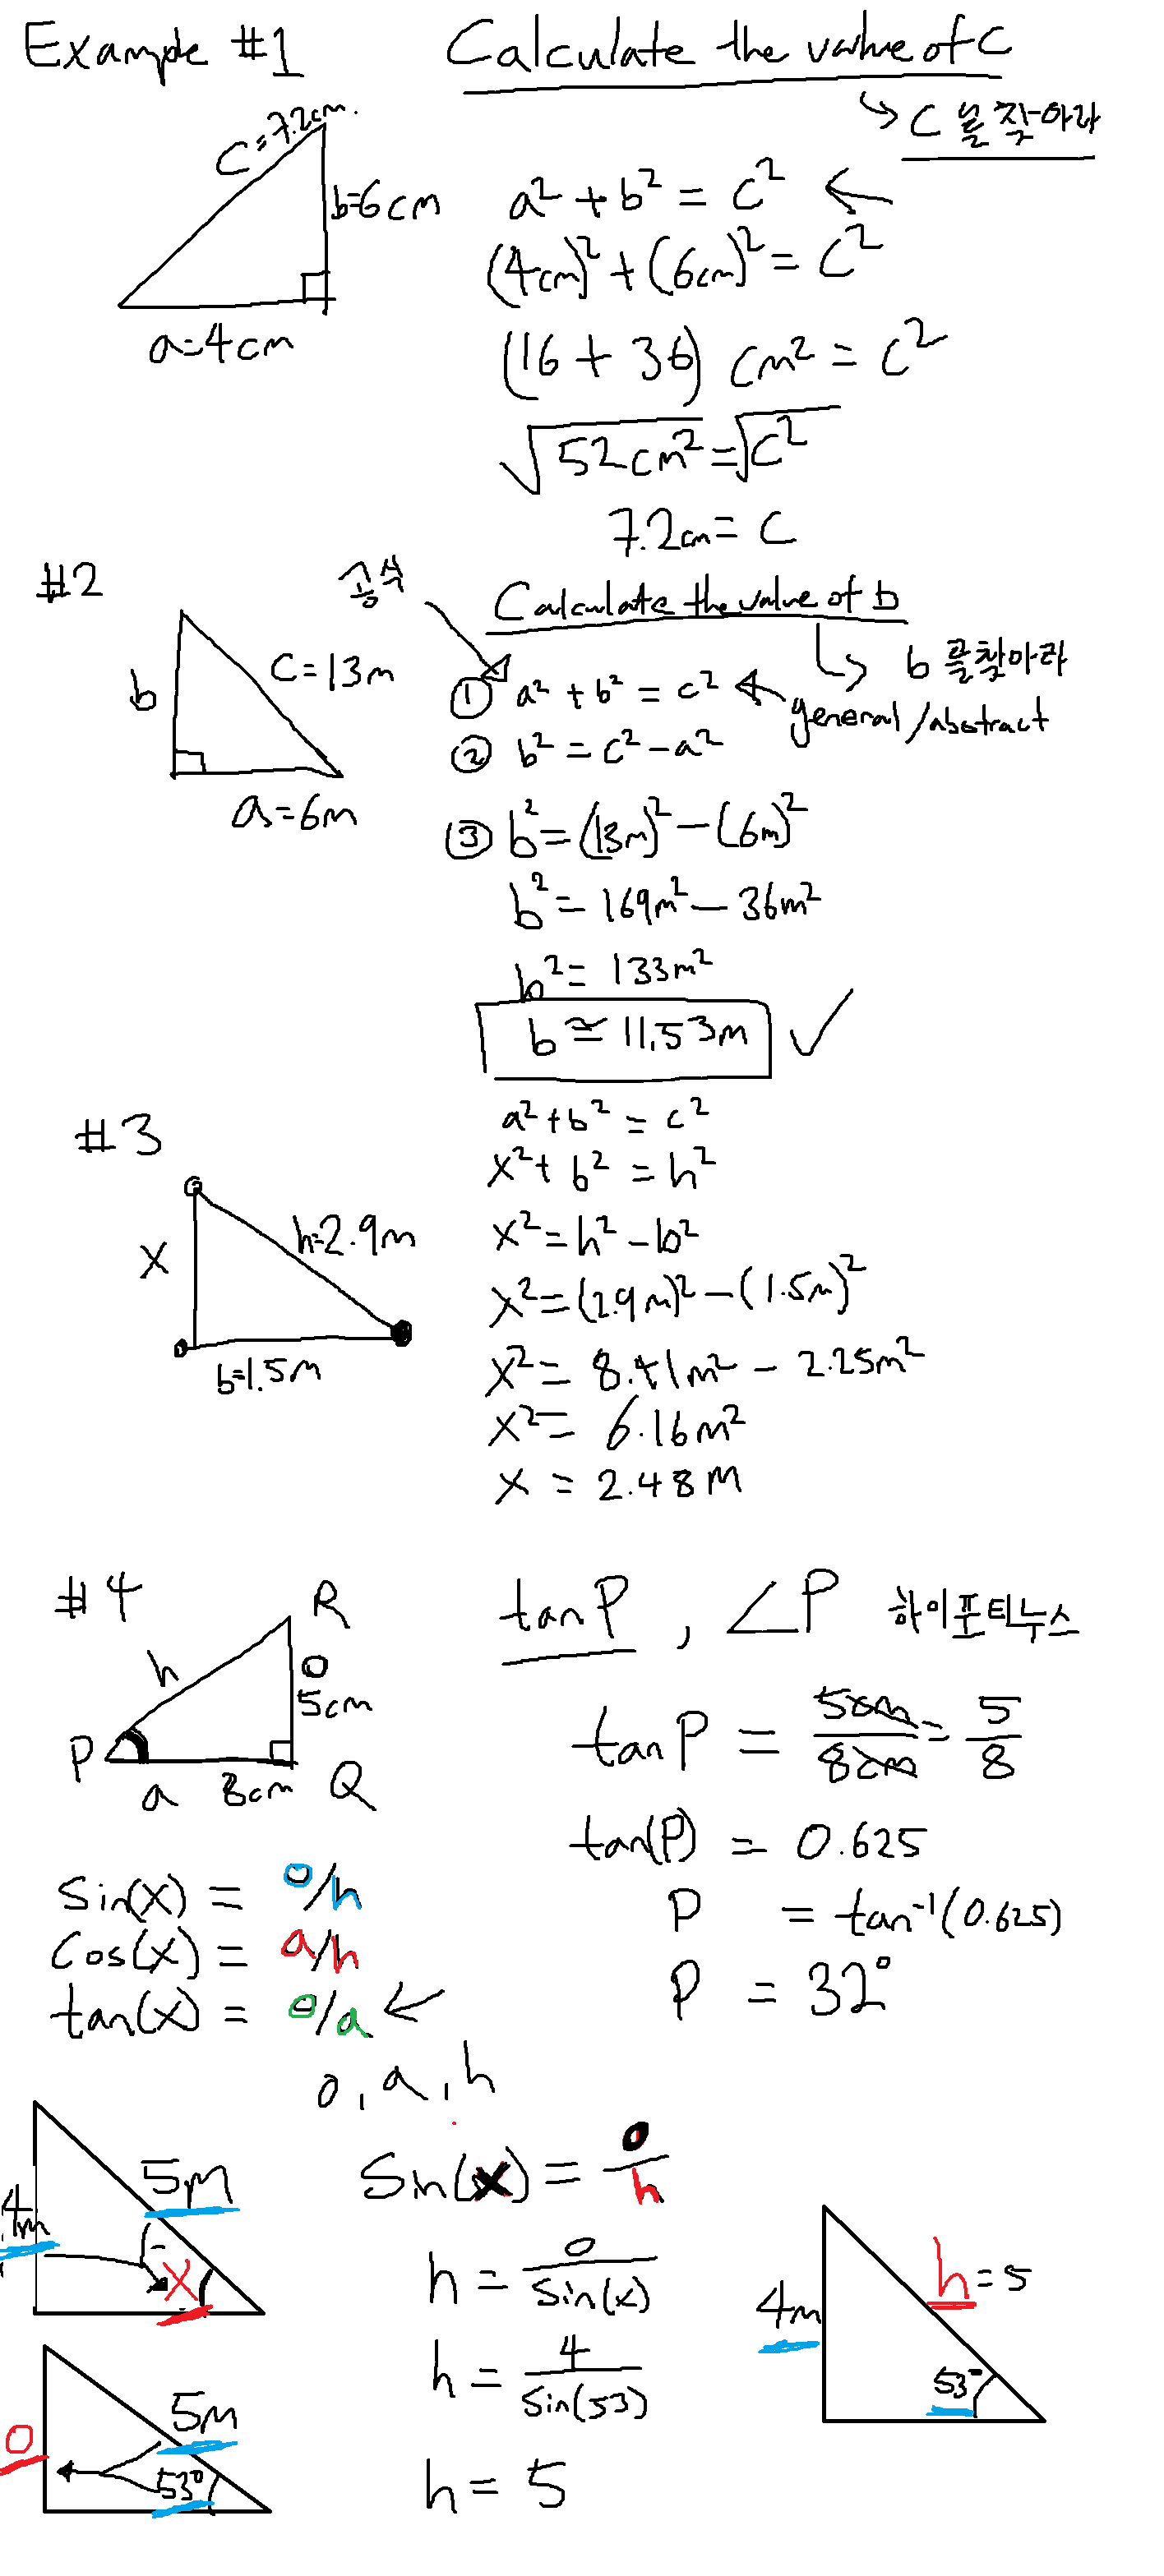 Example #1
Calculate the value of C
C 을 찾아라
C=7.2cm.
b=6cm
a=4cm
a² + b² = c²
(4cm)² + (6cm)² = c²
(16 + 36) cm² = c²
√52cm² = √c²
7.2cm = c
#2
공식
Calculate the value of b
b 를 찾아라
b
C=13m
a=6m
① a² + b² = c²
general/abstract
② b² = c² - a²
③ b² = (13m)² - (6m)²
b² = 169m² - 36m²
b² = 133m²
b ≃ 11.53m ✓
#3
X
h=2.9m
b=1.5m
a² + b² = c²
x² + b² = h²
x² = h² - b²
x² = (2.9m)² - (1.5m)²
x² = 8.41m² - 2.25m²
x² = 6.16m²
x = 2.48m
#4
R
h
O
5cm
P
a
8cm
Q
tanP, ∠P 하이포티누스
tanP = 5cm/8cm = 5/8
tan(P) = 0.625
P = tan⁻¹(0.625)
P = 32°
Sin(x) = o/h
Cos(x) = a/h
tan(x) = o/a
o, a, h
5m
4m
X
Sin(x) = o/h
h = o/Sin(x)
h = 4/Sin(53)
h = 5
h=5
4m
53°
5m
O
53°